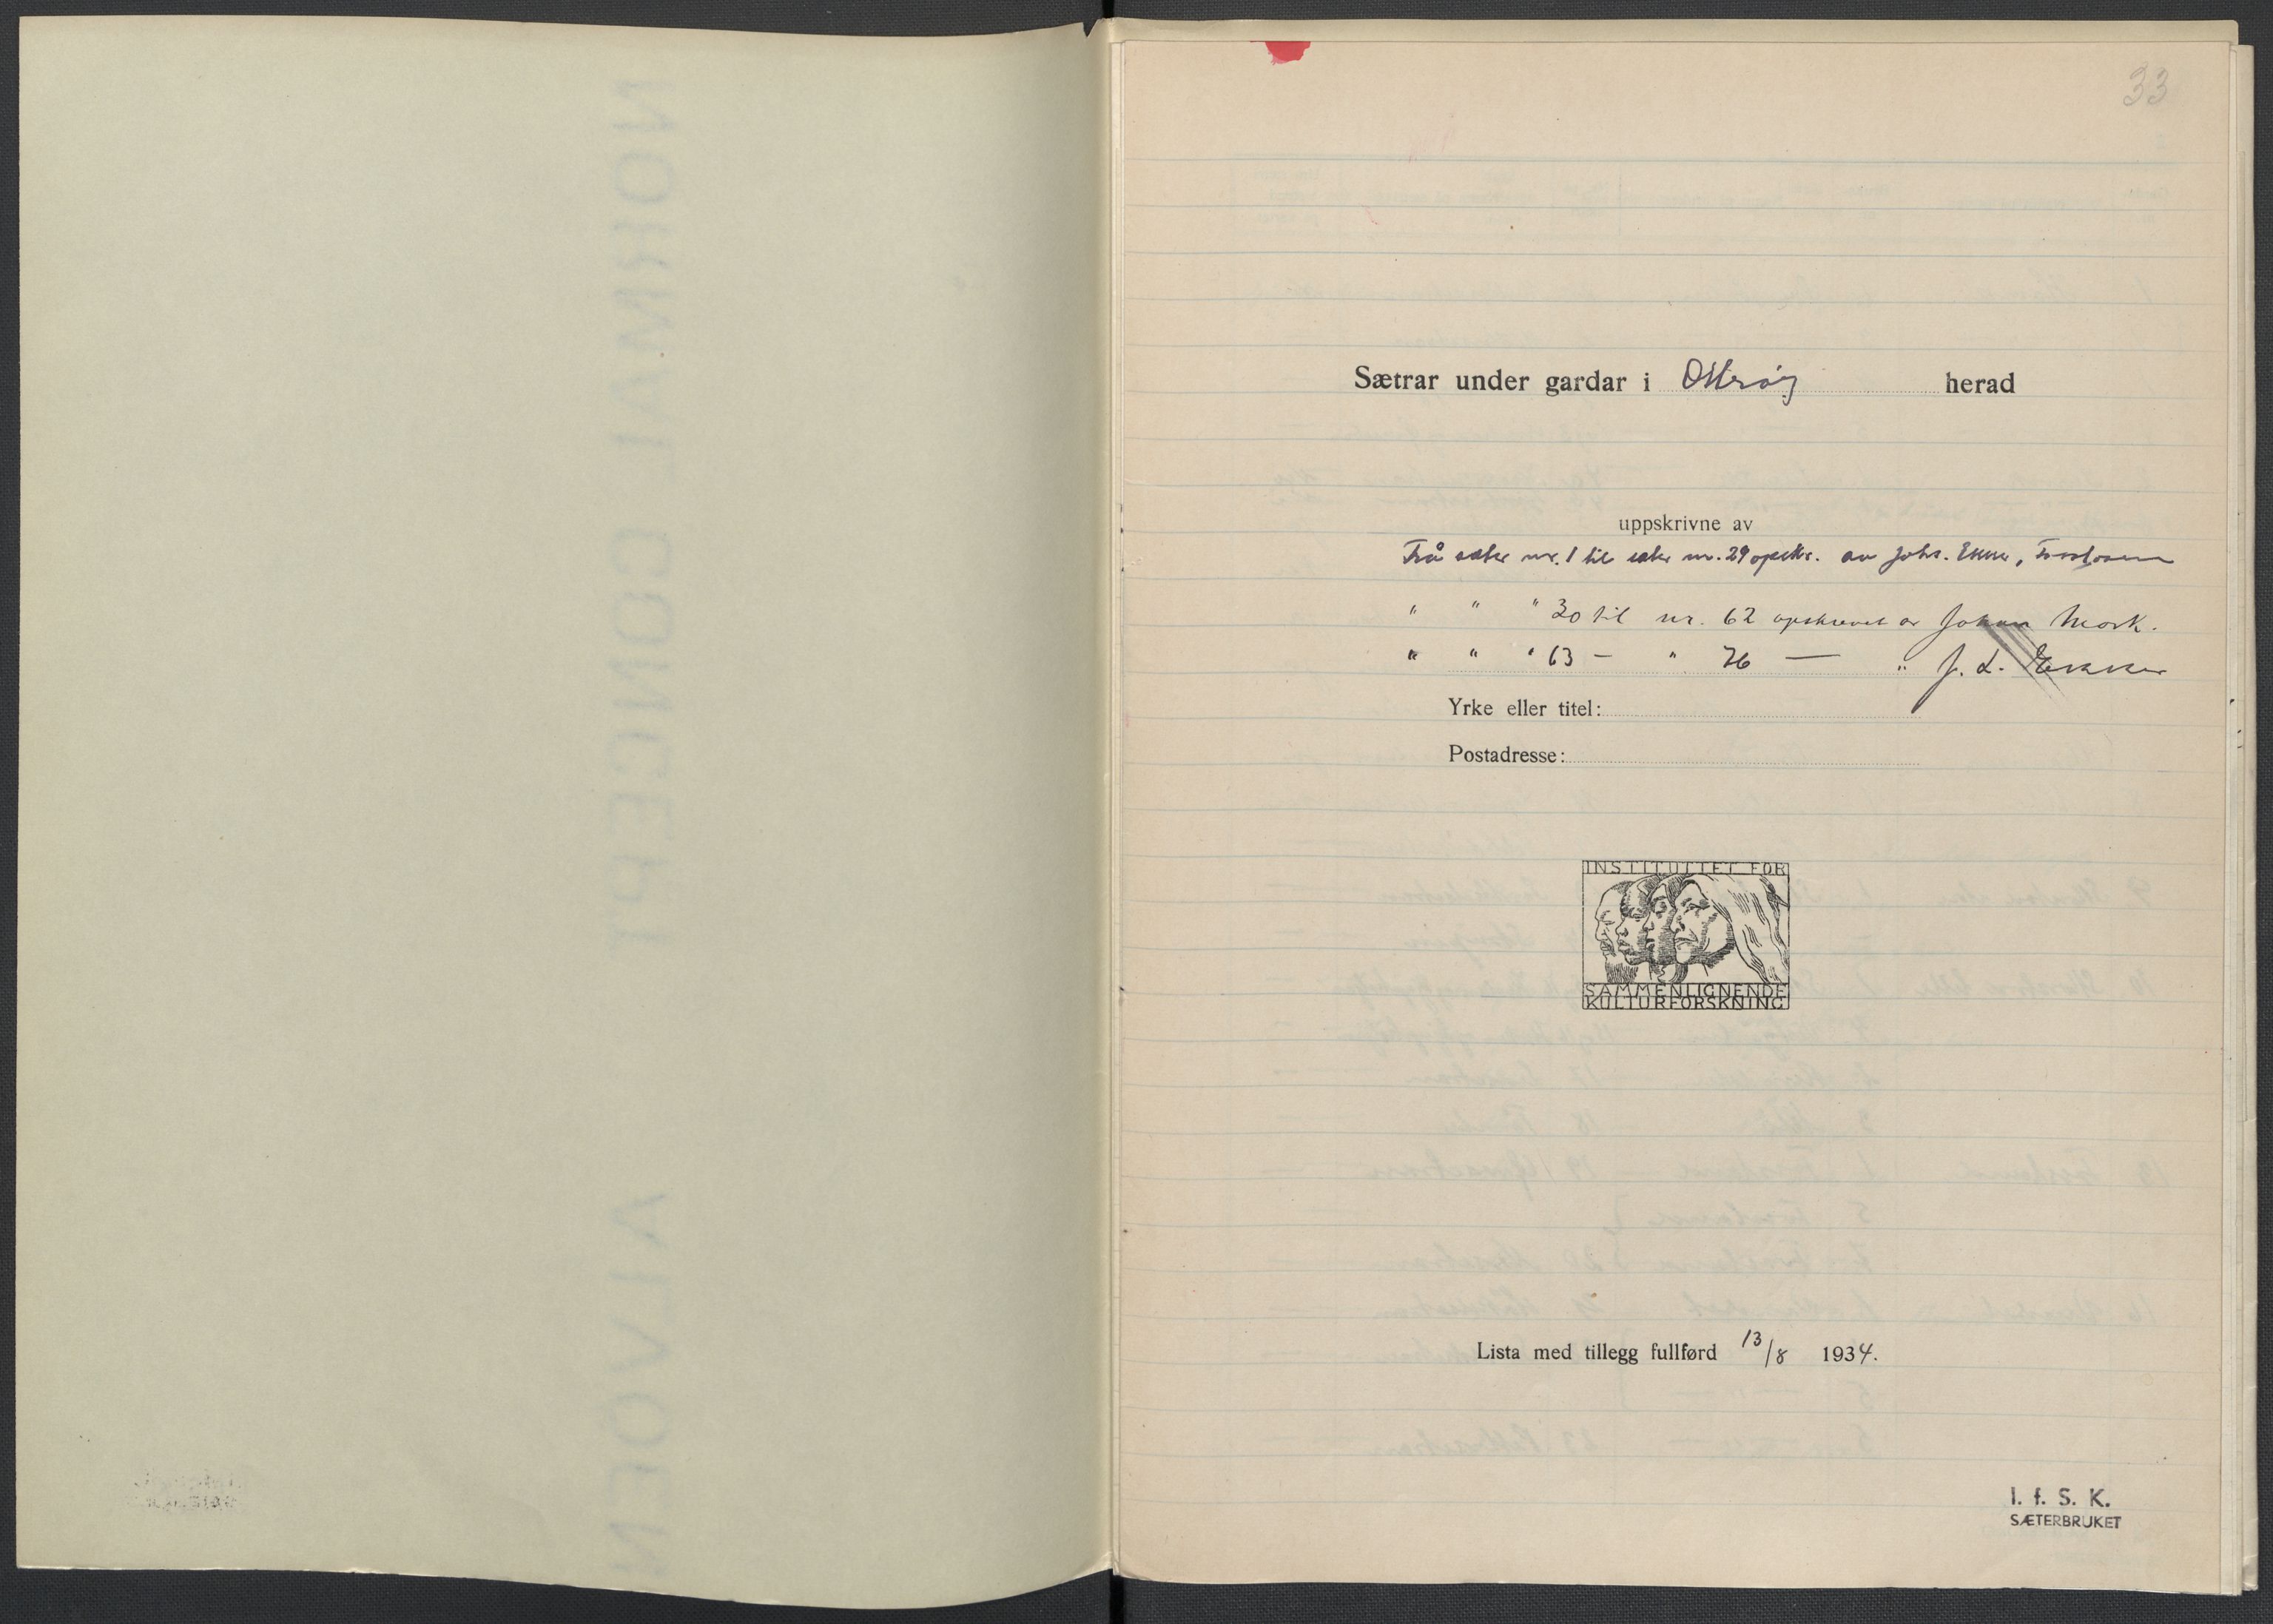 33
Sætrar under gardar i Otterøy herad
uppskrivne av
Frå sæter nr. 1 til sæter nr. 29 opskr. av Johs. Ekker, Fosslosen
" " " 30 til nr. 62 opskrevet av Johan Mork.
" " " 63 — " 76 — " J. L. Ekker
Yrke eller titel:
Postadresse:
INSTITUTTET FOR
SAMMENLIGNENDE
KULTURFORSKNING
Lista med tillegg fullførd 13/8 1934.
I. f. S. K.
SÆTERBRUKET